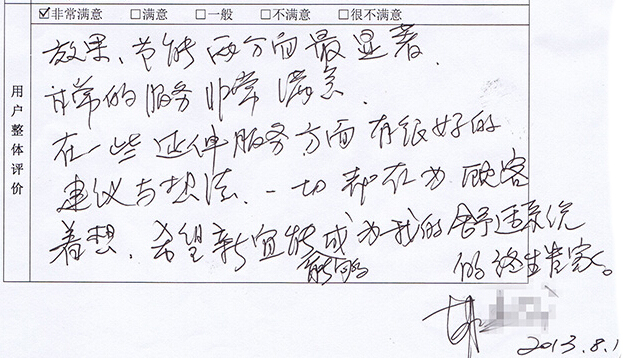 ☑非常满意 □满意 □一般 □不满意 □很不满意
用户整体评价
效果、节能两方面最显著.
日常的服务非常满意.
在一些延伸服务方面有很好的
建议与想法.一切都在为顾客
着想.希望新宜能成为我的舒适系统
能够
的终生管家。
2013.8.1